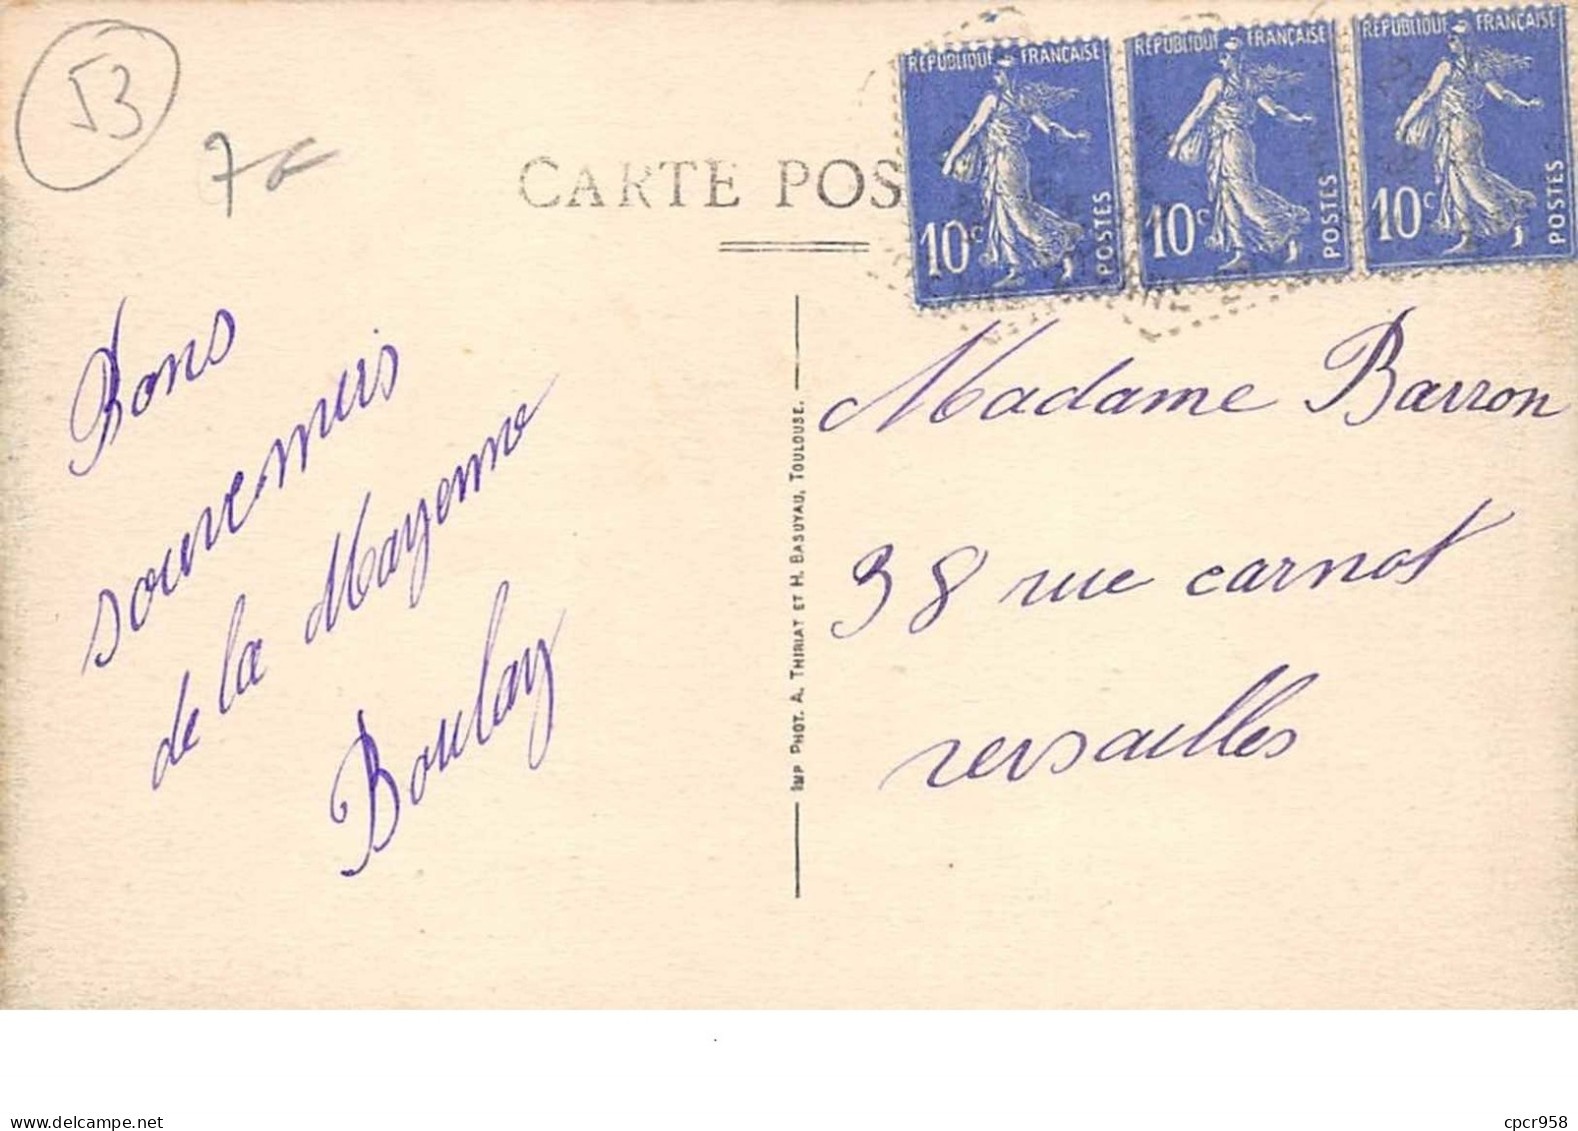 53
7€
CARTE POS
RÉPUBLIQUE FRANÇAISE
10c
POSTES
RÉPUBLIQUE FRANÇAISE
10c
POSTES
RÉPUBLIQUE FRANÇAISE
10c
POSTES
Bons
souvenirs
de la Mayenne
Boulay
IMP PHOT. A. THIRIAT ET H. BASUYAU, TOULOUSE.
Madame Barron
38 rue carnot
versailles
www.delcampe.net
cpcr958